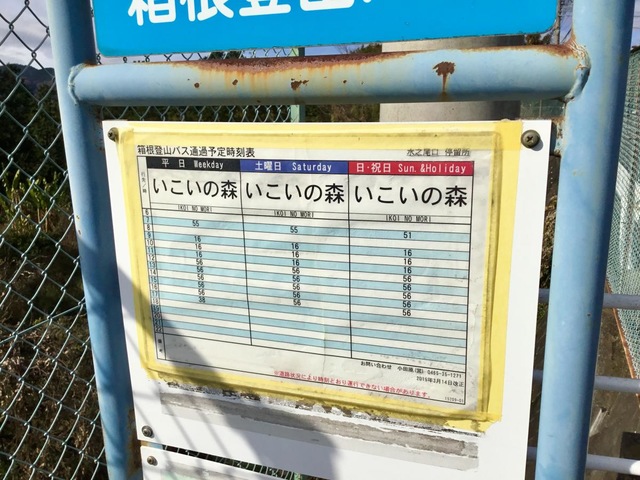 箱根登山
箱根登山バス通過予定時刻表 水之尾口 停留所
平 日 Weekday 土曜日 Saturday 日・祝日 Sun.&Holiday
いこいの森 いこいの森 いこいの森
IKOI NO MORI IKOI NO MORI IKOI NO MORI
6
7 55
8 55 51
9 16
10 16 16 16
11 16 16 16
12 56 16 16
13 56 56 56
14 56 56 56
15 56 56 56
16 56 56 56
17 38 56 56
56
お問い合わせ 小田原(営) 0465-35-1271
※道路状況により時刻どおり運行できない場合があります。 2015年3月14日改正